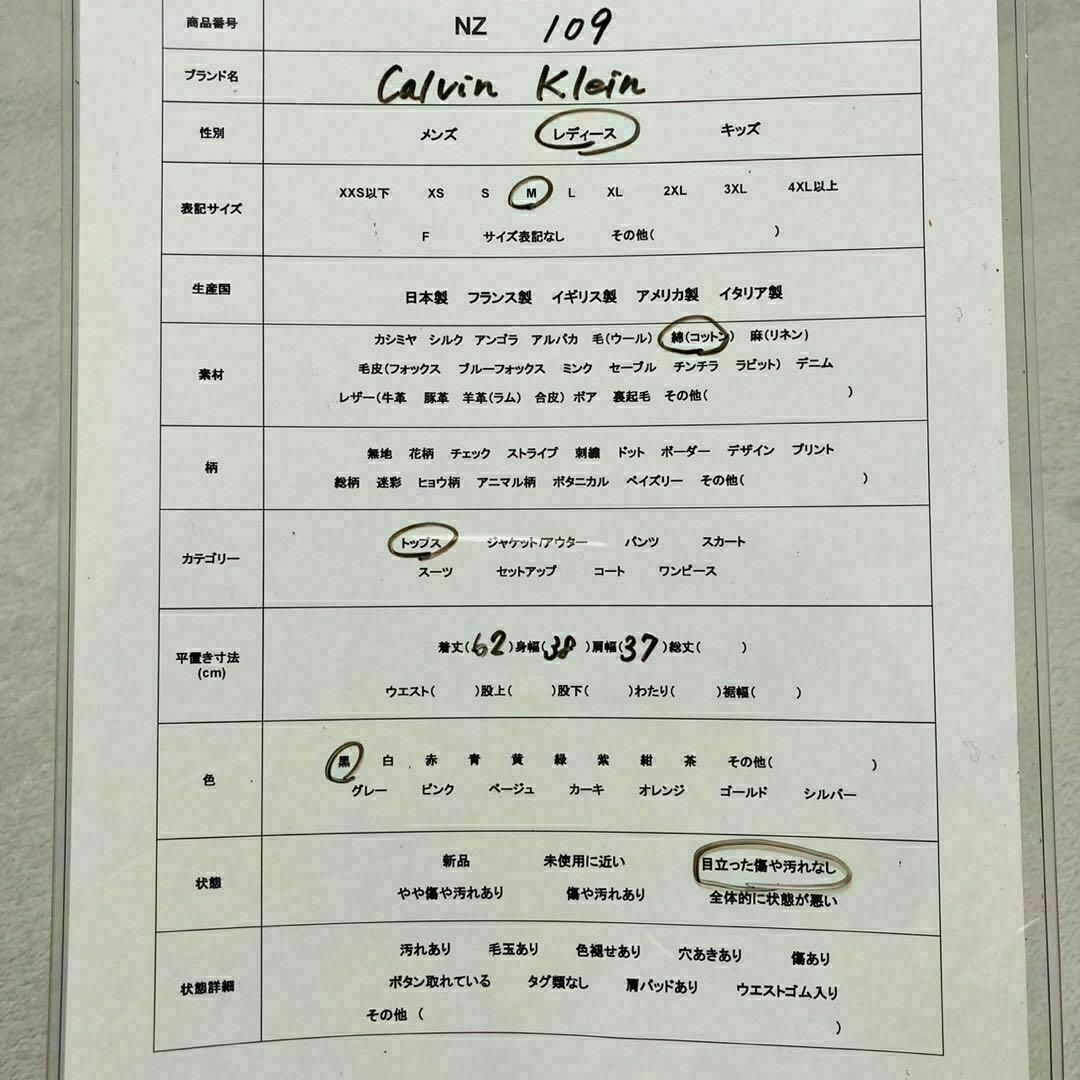 商品番号 NZ 109
ブランド名 Calvin Klein
性別 メンズ レディース キッズ
表記サイズ
XXS以下 XS S M L XL 2XL 3XL 4XL以上
F サイズ表記なし その他( )
生産国 日本製 フランス製 イギリス製 アメリカ製 イタリア製
素材
カシミヤ シルク アンゴラ アルパカ 毛(ウール) 綿(コットン) 麻(リネン)
毛皮(フォックス ブルーフォックス ミンク セーブル チンチラ ラビット) デニム
レザー(牛革 豚革 羊革(ラム) 合皮) ボア 裏起毛 その他( )
柄
無地 花柄 チェック ストライプ 刺繍 ドット ボーダー デザイン プリント
総柄 迷彩 ヒョウ柄 アニマル柄 ボタニカル ペイズリー その他( )
カテゴリー
トップス ジャケット/アウター パンツ スカート
スーツ セットアップ コート ワンピース
平置き寸法
(cm)
着丈(62)身幅(38)肩幅(37)総丈( )
ウエスト( )股上( )股下( )わたり( )裾幅( )
色
黒 白 赤 青 黄 緑 紫 紺 茶 その他( )
グレー ピンク ベージュ カーキ オレンジ ゴールド シルバー
状態
新品 未使用に近い 目立った傷や汚れなし
やや傷や汚れあり 傷や汚れあり 全体的に状態が悪い
状態詳細
汚れあり 毛玉あり 色褪せあり 穴あきあり 傷あり
ボタン取れている タグ類なし 肩パッドあり ウエストゴム入り
その他 ( )